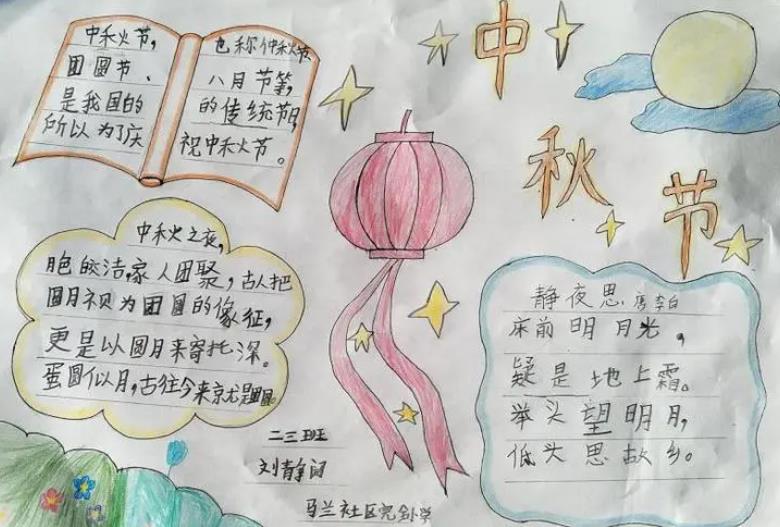 中秋节
中秋火节，
团圆节、
是我国的
所以为了庆
也称仲秋节、
八月节等，
的传统节日，
祝中秋火节。
中秋之夜，
皎洁，家人团聚，古人把
圆月视为团圆的像征，
更是以圆月来寄托深。
蛋圆似月，古往今来
静夜思 唐李白
床前明月光，
疑是地上霜。
举头望明月，
低头思故乡。
二三班
刘静
马兰社区完全小学